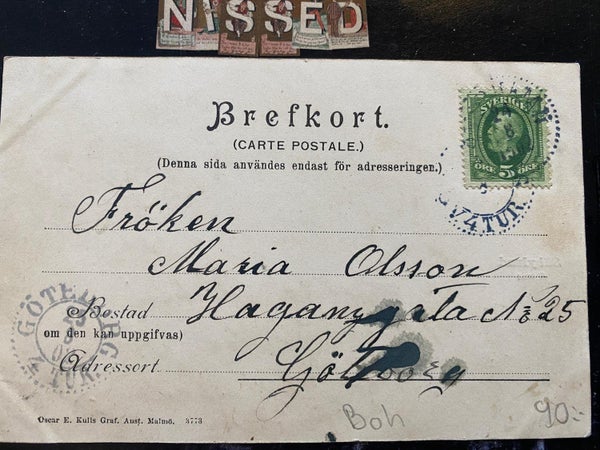 NISSED
Brefkort.
(CARTE POSTALE.)
(Denna sida användes endast för adresseringen.)
SVERIGE
ÖRE 5 ÖRE
4 TUR
Fröken
Maria Olsson
Bostad Haganygata No 25
om den kan uppgifvas)
Adressort Göteborg
GÖTEBORG
Oscar E. Kulls Graf. Anst. Malmö. 3773
Boh
90:-